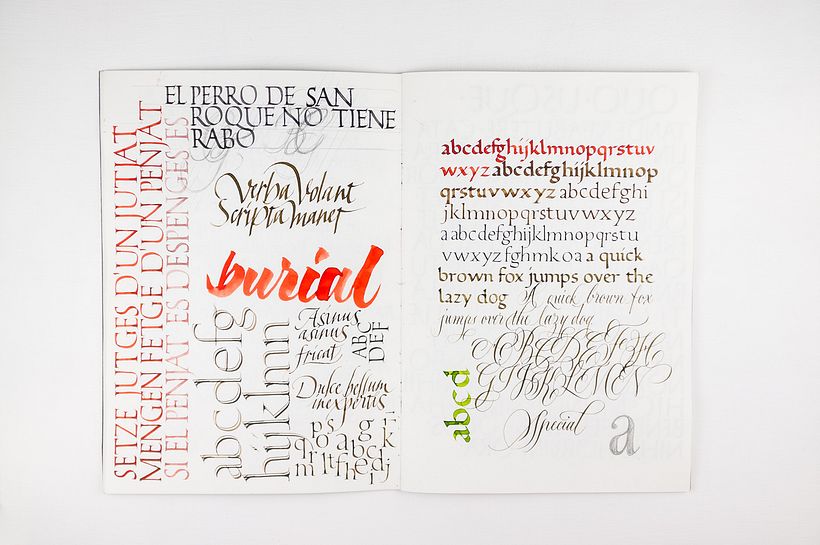 EL PERRO DE SAN
ROQUE NO TIENE
RABO
SETZE JUTGES D'UN JUTJAT
MENGEN FETGE D'UN PENJAT
SI EL PENJAT ES DESPENGES ES
Verba Volant
Scripta Manet
burial
abcdefg
hijklmn
Asinus
asinus
fricat
ABC
DEF
Dulce bellum
inexpertis
abcdefghijklmnopqrstuv
wxyz abcdefghijklmnop
qrstuvwxyz abcdefghi
jklmnopqrstuvwxyz
a abcdefghijklmnopqrstu
vwxyz fghmkoa a quick
brown fox jumps over the
lazy dog A quick brown fox
jumps over the lazy dog
abcd
Special
a